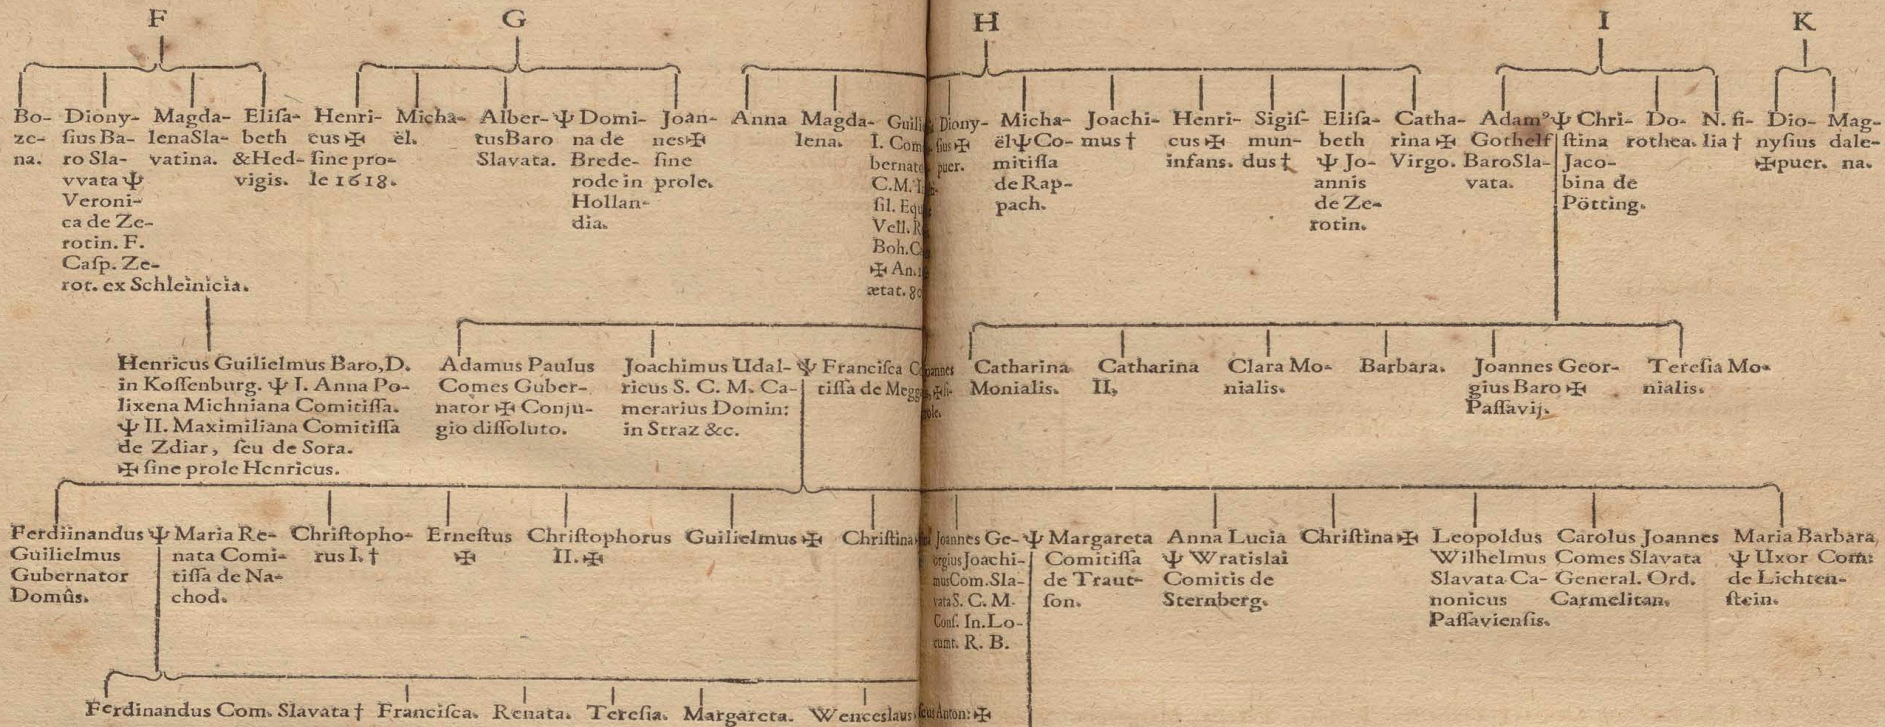 F
G
H
I
K
Bo-
ze-
na.
Diony-
ſius Ba-
ro Sla-
vvata Ψ
Veroni-
ca de Ze-
rotin. F.
Caſp. Ze-
rot. ex Schleinicia.
Magda-
lenaSla-
vatina.
Eliſa-
beth
&Hed-
vigis.
Henri-
cus ✠
ſine pro-
le 1618.
Micha-
ël.
Alber-
tusBaro
Slavata.
Ψ Domi-
na de
Brede-
rode in
Hollan-
dia.
Joan-
nes✠
ſine
prole.
Anna
Magda-
lena.
Guili
I. Com
bernat
C.M.
ſil. Equ
Vell. R
Boh. C
✠ An.
ætat. 80
Diony-
ſius✠
puer.
Micha-
ëlΨCo-
mitiſſa
de Rap-
pach.
Joachi-
mus †
Henri-
cus ✠
infans.
Sigiſ-
mun-
dus †
Eliſa-
beth
Ψ Jo-
annis
de Ze-
rotin.
Catha-
rina ✠
Virgo.
Adamꝰ
Gothelf
BaroSla-
vata.
Ψ Chri-
ſtina
Jaco-
bina de
Pötting.
Do-
rothea.
N. fi-
lia †
Dio-
nyſius
✠puer.
Mag-
dale-
na.
Henricus Guilielmus Baro, D.
in Koſſenburg. Ψ I. Anna Po-
lixena Michniana Comitiſſa.
Ψ II. Maximiliana Comitiſſa
de Zdiar, ſeu de Sora.
✠ ſine prole Henricus.
Adamus Paulus
Comes Guber-
nator ✠ Conju-
gio diſſoluto.
Joachimus Udal-
ricus S. C. M. Ca-
merarius Domin:
in Straz &c.
Ψ Franciſca C
tiſſa de Megg
oannes
✠ſi-
ole.
Catharina
Monialis.
Catharina
II,
Clara Mo-
nialis.
Barbara.
Joannes Geor-
gius Baro ✠
Paſſavij.
Tereſia Mo-
nialis.
Ferdiinandus
Guilielmus
Gubernator
Domûs.
Ψ Maria Re-
nata Comi-
tiſſa de Na-
chod.
Chriſtopho-
rus I. †
Erneſtus
✠
Chriſtophorus
II. ✠
Guilielmus ✠
Chriſtina
Joannes Ge-
orgius Joachi-
musCom. Sla-
vata S. C. M.
Conſ. In. Lo-
cumt. R. B.
Ψ Margareta
Comitiſſa
de Traut-
ſon.
Anna Lucia
Ψ Wratislai
Comitis de
Sternberg.
Chriſtina✠
Leopoldus
Wilhelmus
Slavata Ca-
nonicus
Paſſavienſis.
Carolus Joannes
Comes Slavata
General. Ord.
Carmelitan.
Maria Barbara
Ψ Uxor Com:
de Lichten-
ſtein.
Ferdinandus Com. Slavata †
Franciſca.
Renata.
Tereſia.
Margareta.
Wenceslaus
Anton: ✠